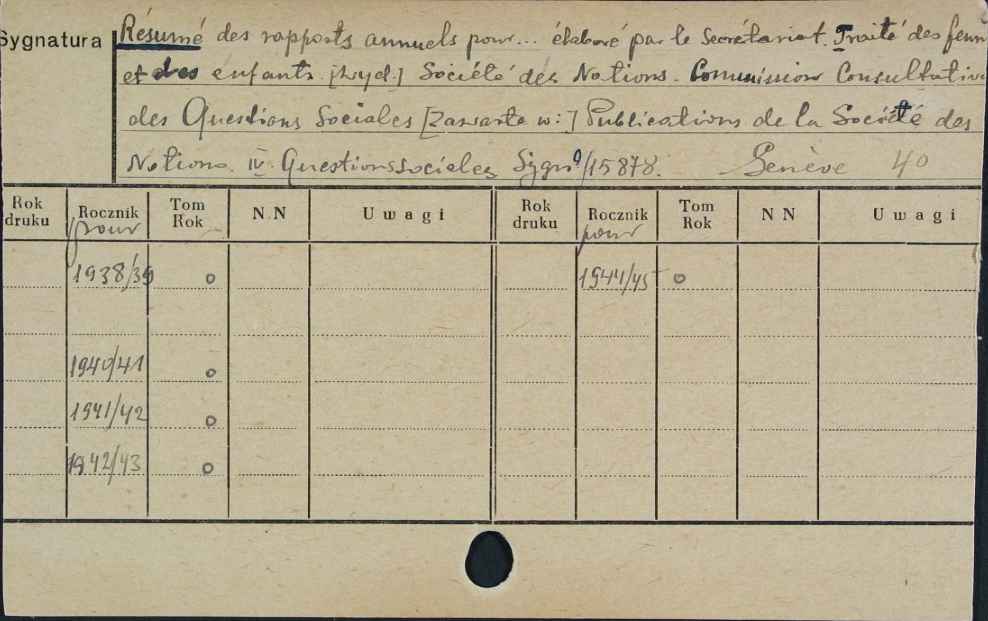 Sygnatura
Résumé des rapports annuels pour... élaboré par le Secrétariat. Traité des femm
et des enfants. [Wyd.] Société des Nations. Commission Consultative
des Questions Sociales [Zawarte w:] Publications de la Société des
Nations. IV. Questions sociales Sygn. 15878. Genève 4º
Rok druku Rocznik Tom Rok NN Uwagi Rok druku Rocznik Tom Rok NN Uwagi
pour pour
1938/39 o 1944/45 o
1940/41 o
1941/42 o
1942/43 o